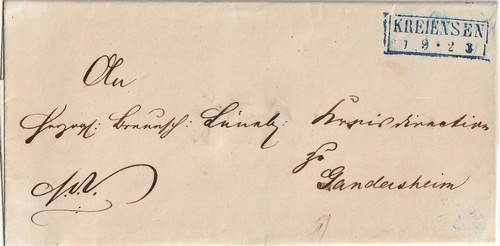 KREIENSEN
19 • 23
An
Herzogl: Braunsch: Lüneb: Kreisdirection
zu
Gandersheim